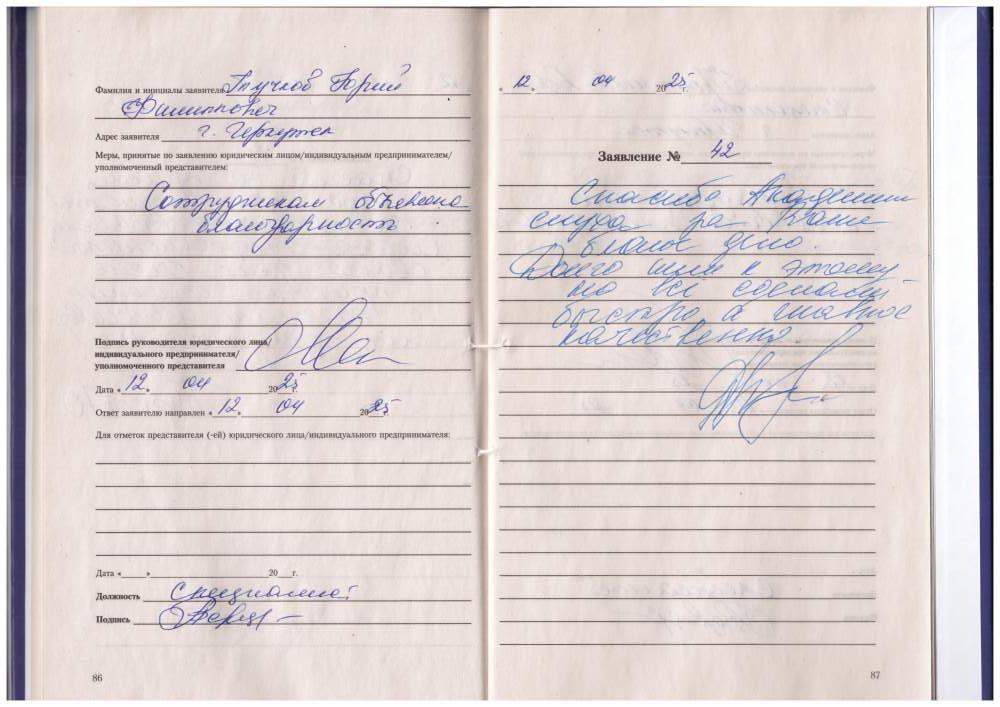 Фамилия и инициалы заявителя Тручков Юрий
Филиппович
Адрес заявителя г.
Меры, принятые по заявлению юридическим лицом/индивидуальным предпринимателем/
уполномоченный представителем:
Сотрудникам объявлена
благодарность
Подпись руководителя юридического лица/
индивидуального предпринимателя/
уполномоченного представителя
Дата «12» 04 2025
Ответ заявителю направлен «12. 04 2025г.
Для отметок представителя (-ей) юридического лица/индивидуального предпринимателя:
Дата «___»________20__г.
Должность специалист
Подпись
86
« 12. 04 2025г.
Заявление № 42
Спасибо Академии
слуха за Ваше
благое дело.
Долго шли к этому
но всё сделали
быстро а главное
качественно.
87